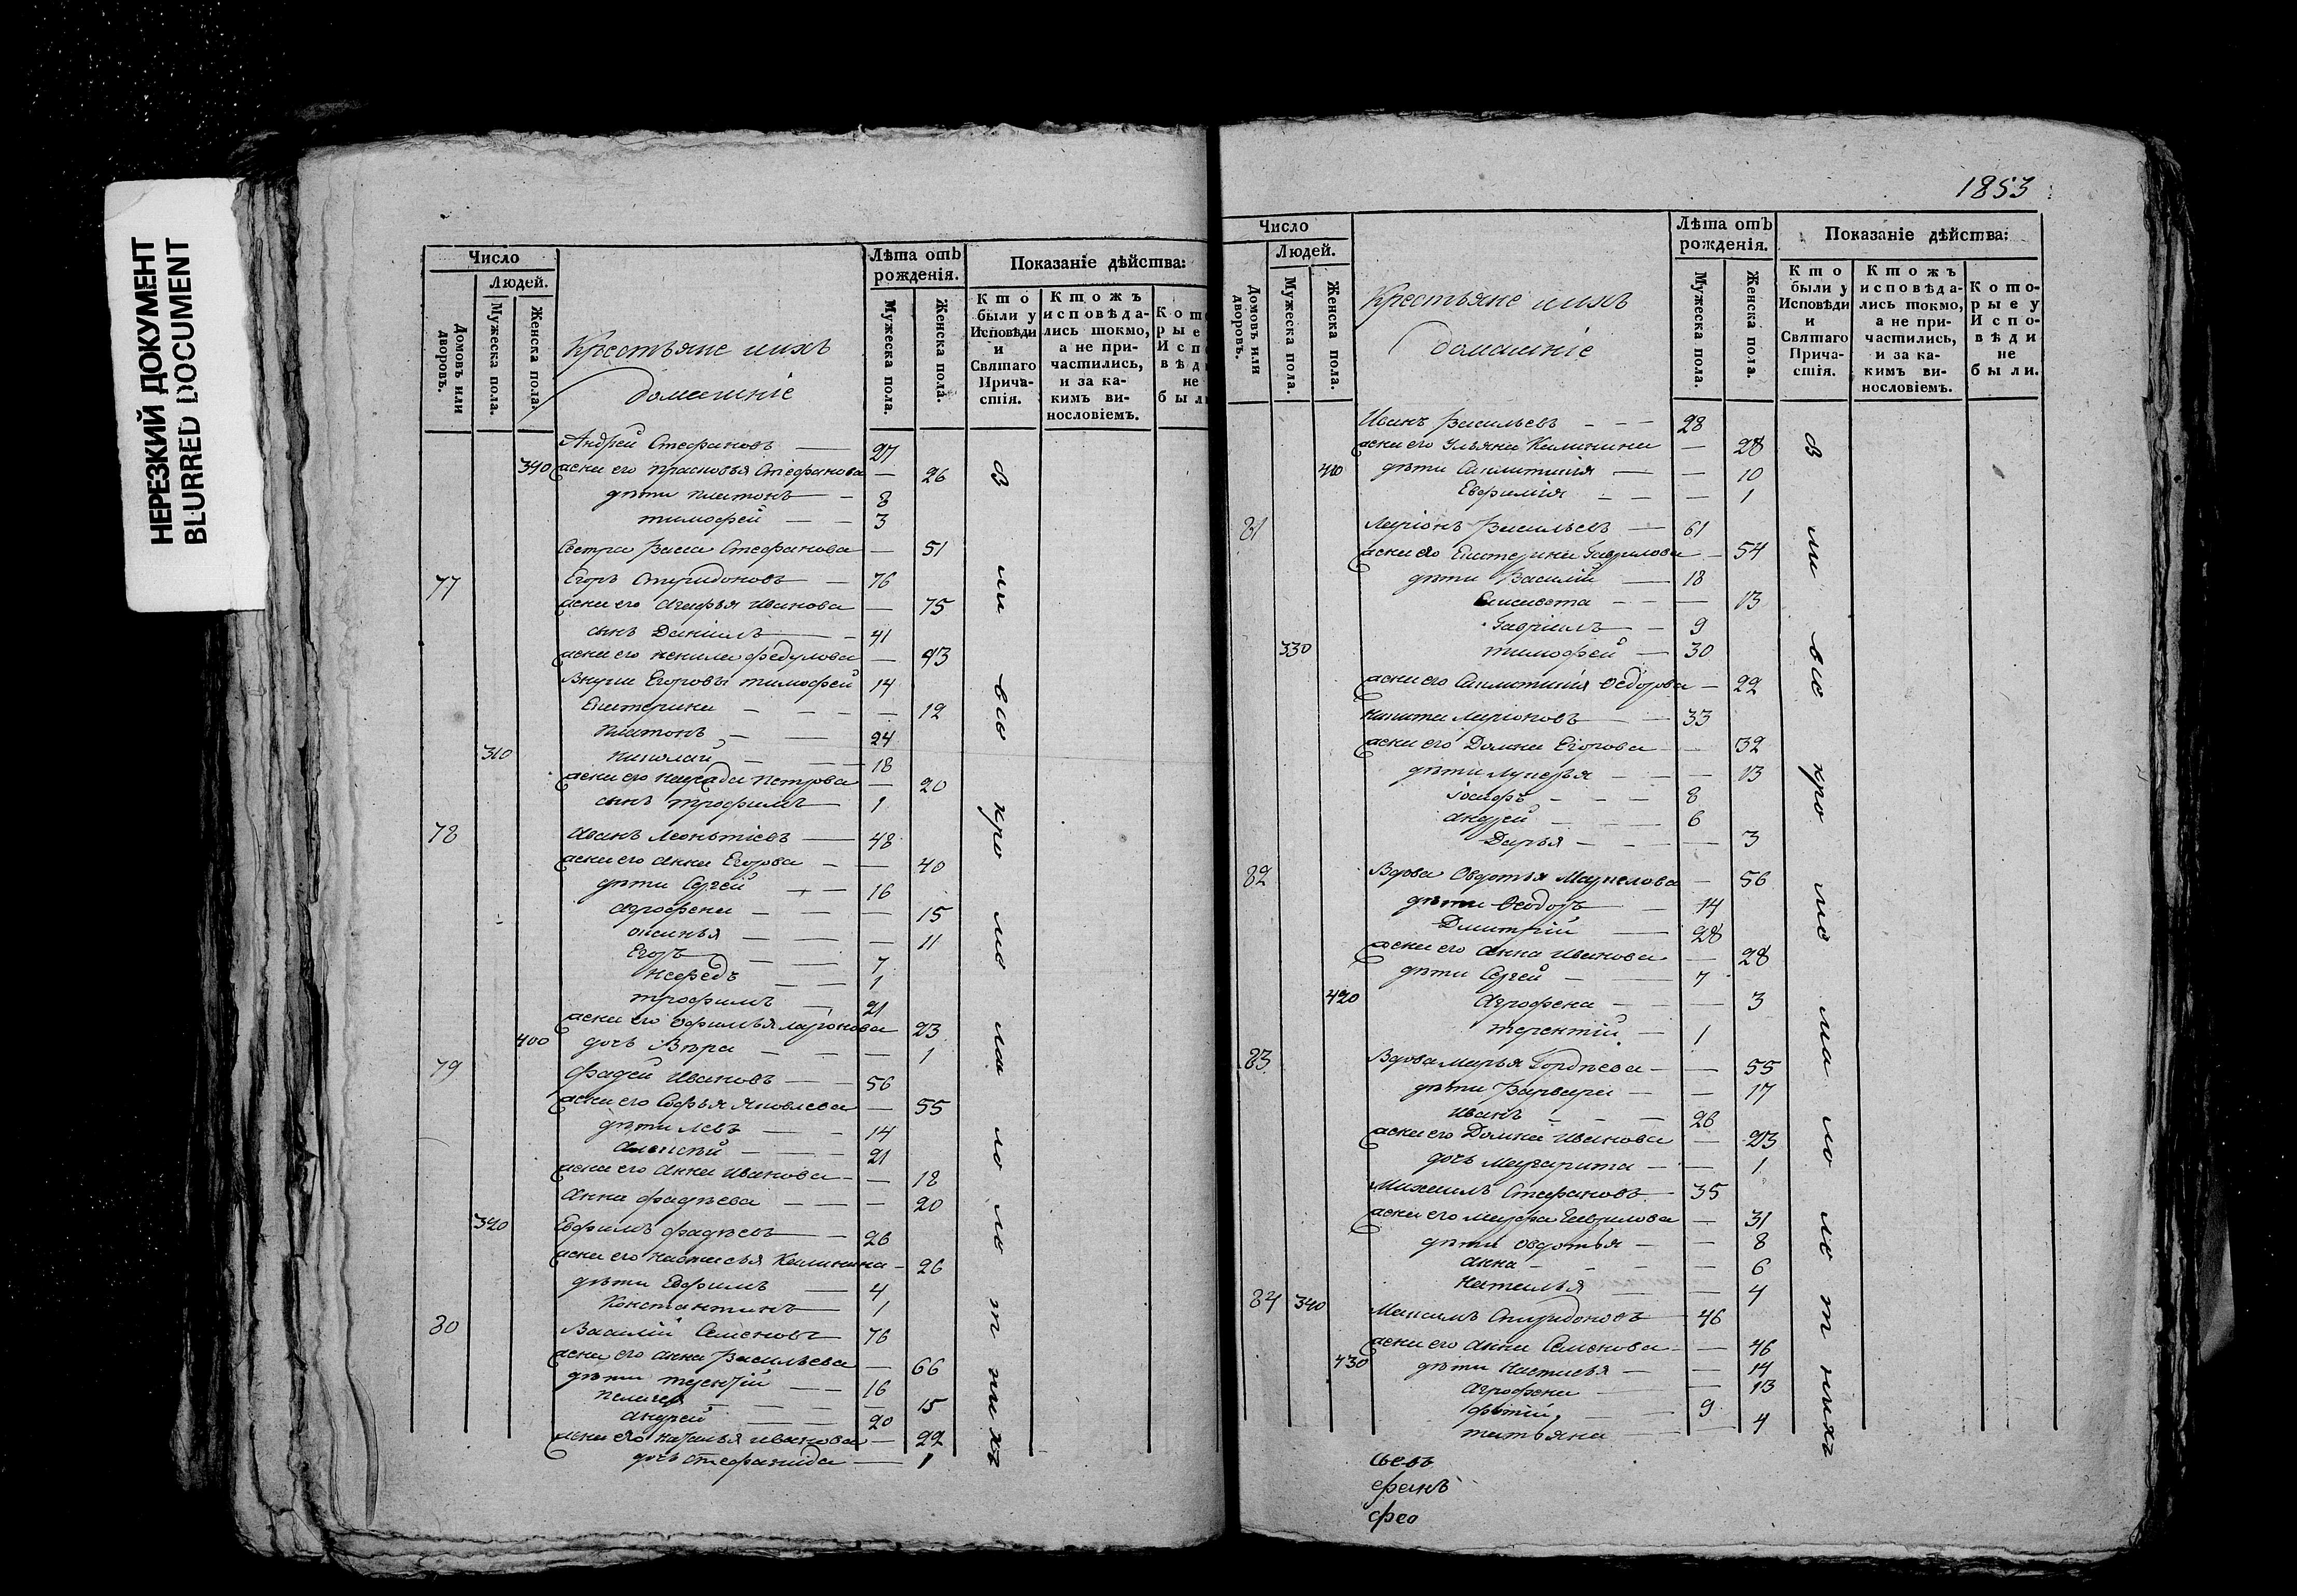 НЕРЕЗКИЙ ДОКУМЕНТ
BLURRED DOCUMENT
Число
Людей.
Домовъ или дворовъ.
Мужеска пола.
Женска пола.
Крестьяне и ихъ
домашніе
Лѣта отъ рожденія.
Мужеска пола.
Женска пола.
Показаніе дѣйства:
Кто были у Исповѣди и Святаго Причастія.
Ктожъ исповѣдались токмо, а не причастились, и за какимъ винословіемъ.
Андрей Стефановъ — 27
390 жена его Прасковья Стефанова — 26
дѣти Платонъ — 8
Тимофей — — 3
Сестра Васса Стефанова — 51
77 Егоръ Спиридоновъ — 76
жена его Агафья Иванова — 75
сынъ Даніилъ — 41
жена его Федулова — 43
Внуки Егоровы Тимофей 14
Екатерина — — 12
Платонъ — — 24
310 Николай — — 18
жена его Петрова — 20
сынъ Трофимъ — 1
78 Иванъ Леонтіевъ — 48
жена его Анна Егорова — — 40
дѣти Сергей — — 16
Агрофена — — — 15
Аксинья — — — 11
Егоръ — — 7
— — 1
Трофимъ — 21
жена его Офимья Ларіонова 23
400 дочь Вѣра — — — 1
79 Фадей Ивановъ — — 56
жена его Софья Яковлева — 55
дѣти Левъ — — 14
Алексѣй — — — 21
жена его Анна Иванова — — 18
Анна Фадѣева — — — 20
320 Евфимъ Фадѣевъ — — 26
жена его Настасья Калинина — 26
дѣти Евфимъ — 4
Константинъ — 1
80 Василій Семеновъ 76
жена его Анна Васильева — 66
дѣти Терентій — — 16
Пелагея — — — — 15
Андрей — — 20
жена его Наталья Иванова — 22
дочь Стефанида — 1
В
си
вы
кро
ме
ма
ло
ле
т
нихъ
1853
Число
Людей.
Домовъ или дворовъ.
Мужеска пола.
Женска пола.
Крестьяне и ихъ
домашніе
Лѣта отъ рожденія.
Мужеска пола.
Женска пола.
Показаніе дѣйства:
Кто были у Исповѣди и Святаго Причастія.
Ктожъ исповѣдались токмо, а не причастились, и за какимъ винословіемъ.
Которые у Исповѣди не были.
Иванъ Васильевъ — — — 28
жена его Ульяна Калинина — 28
410 дѣти — — 10
Евфимія — — — 1
81 Ларіонъ Васильевъ — 61
жена его Екатерина Гаврилова — 54
дѣти Василій — 18
Елисавета — — — 13
Гавріилъ — — 9
330 Тимофей — 30
жена его Ѳеодорова — 22
Никита Ларіоновъ — — 33
жена его Домна Егорова — 32
дѣти Лукерья — — — 13
Іосифъ — — — 8
Андрей — — — 6
Дарья — — — — 3
82 Вдова Овдотья Маркелова — 56
дѣти Ѳеодоръ — 14
Димитрій — 28
жена его Анна Иванова — 28
дѣти Сергей — — 7
420 Агрофена — — — 3
Терентій — 1
83 Вдова Марья Гордѣева — — 55
дѣти Варвара — — 17
Иванъ — — — 26
жена его Домна Иванова — 23
дочь Маргарита — — 1
Михаилъ Стефановъ — 35
жена его Марфа Гаврилова — 31
дѣти Овдотья — — 8
Анна — — — — 6
Наталья — — 4
84 340 Максимъ Спиридоновъ — 46
жена его Анна Семенова — — 46
430 дѣти Настасья — — 14
Агрофена — — 13
Фотій — — 9
Татьяна — — 4
В
си
вы
кро
ме
ма
ло
ле
т
нихъ